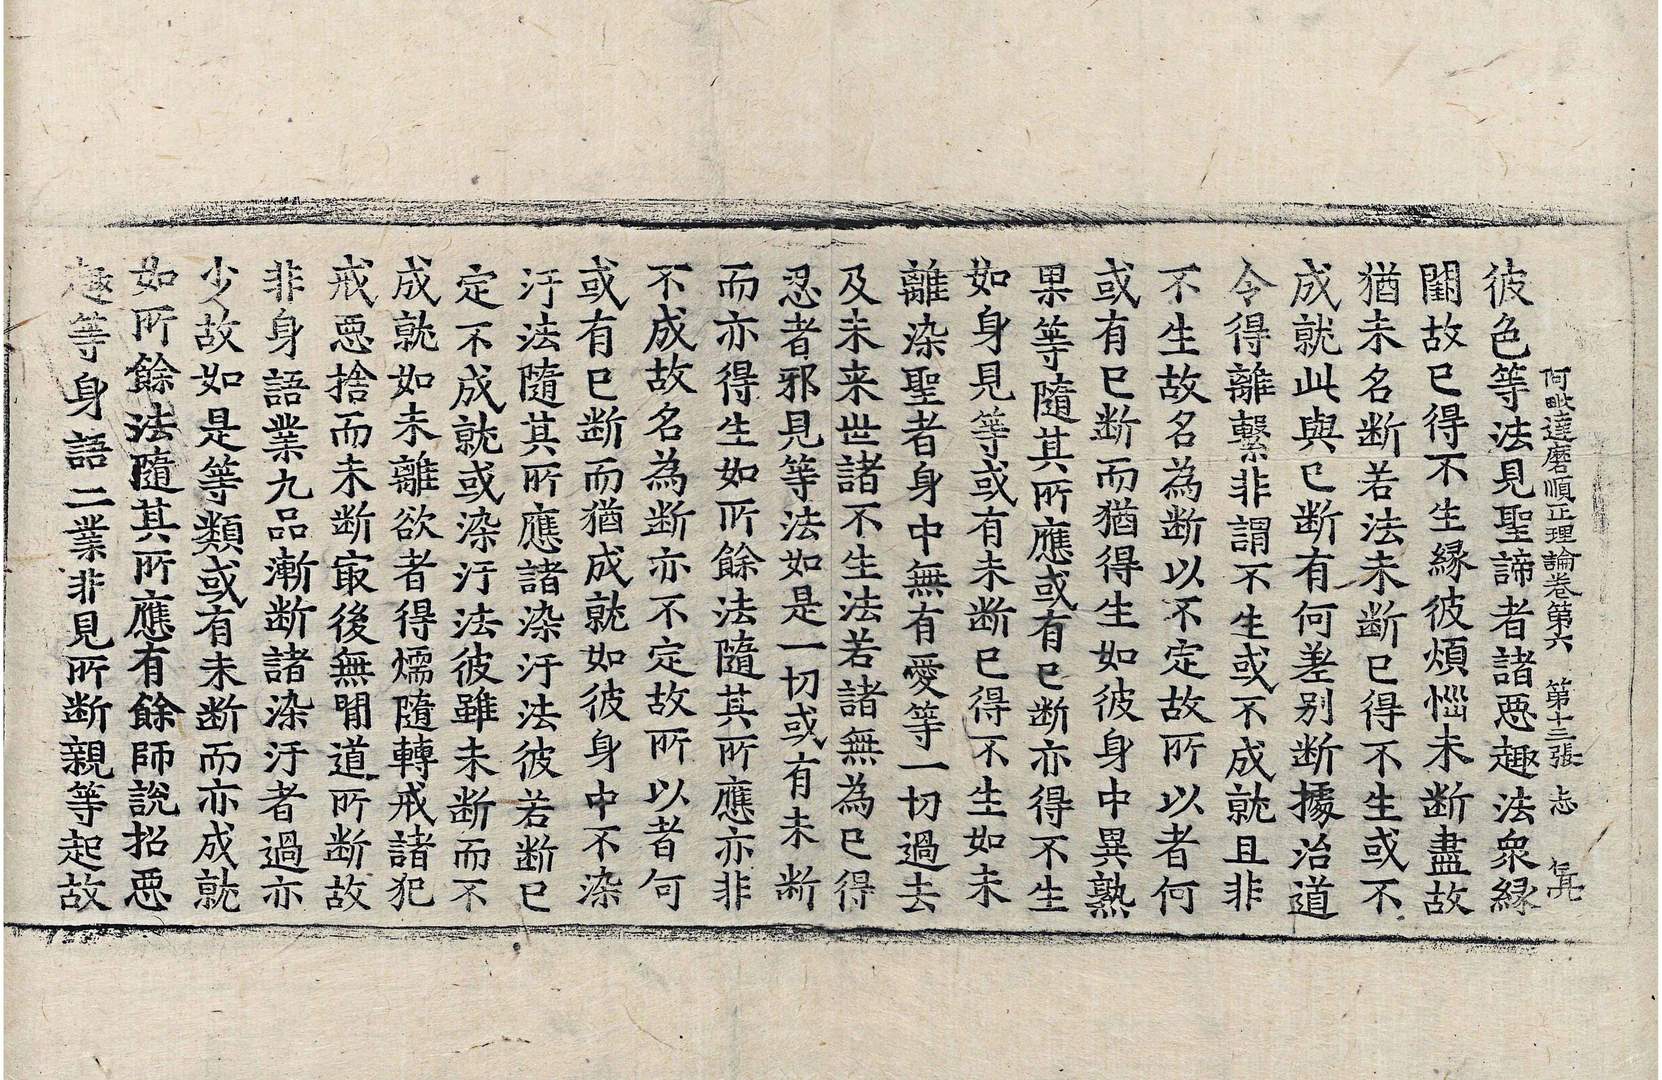 阿毗達磨順正理論卷第六 第十三張 志
彼色等法見聖諦者諸惡趣法衆緣
闕故已得不生緣彼煩惱未断盡故
猶未名断若法未断已得不生或不
成就此與已断有何差别断據治道
令得離繫非謂不生或不成就且非
不生故名為断以不定故所以者何
或有已断而猶得生如彼身中異熟
果等隨其所應或有已断亦得不生
如身見等或有未断已得不生如未
離染聖者身中無有愛等一切過去
及未来世諸不生法若諸無為已得
忍者邪見等法如是一切或有未断
而亦得生如所餘法隨其所應亦非
不成故名為断亦不定故所以者何
或有已断而猶成就如彼身中不染
汙法隨其所應諸染汙法彼若断已
定不成就或染汙法彼雖未断而不
成就如未離欲者得煗隨轉戒諸犯
戒惡捨而未断冣後無間道所断故
非身語業九品漸断諸染汙者過亦
少故如是等類或有未断而亦成就
如所餘法隨其所應有餘師說招惡
趣等身語二業非見所断親等起故